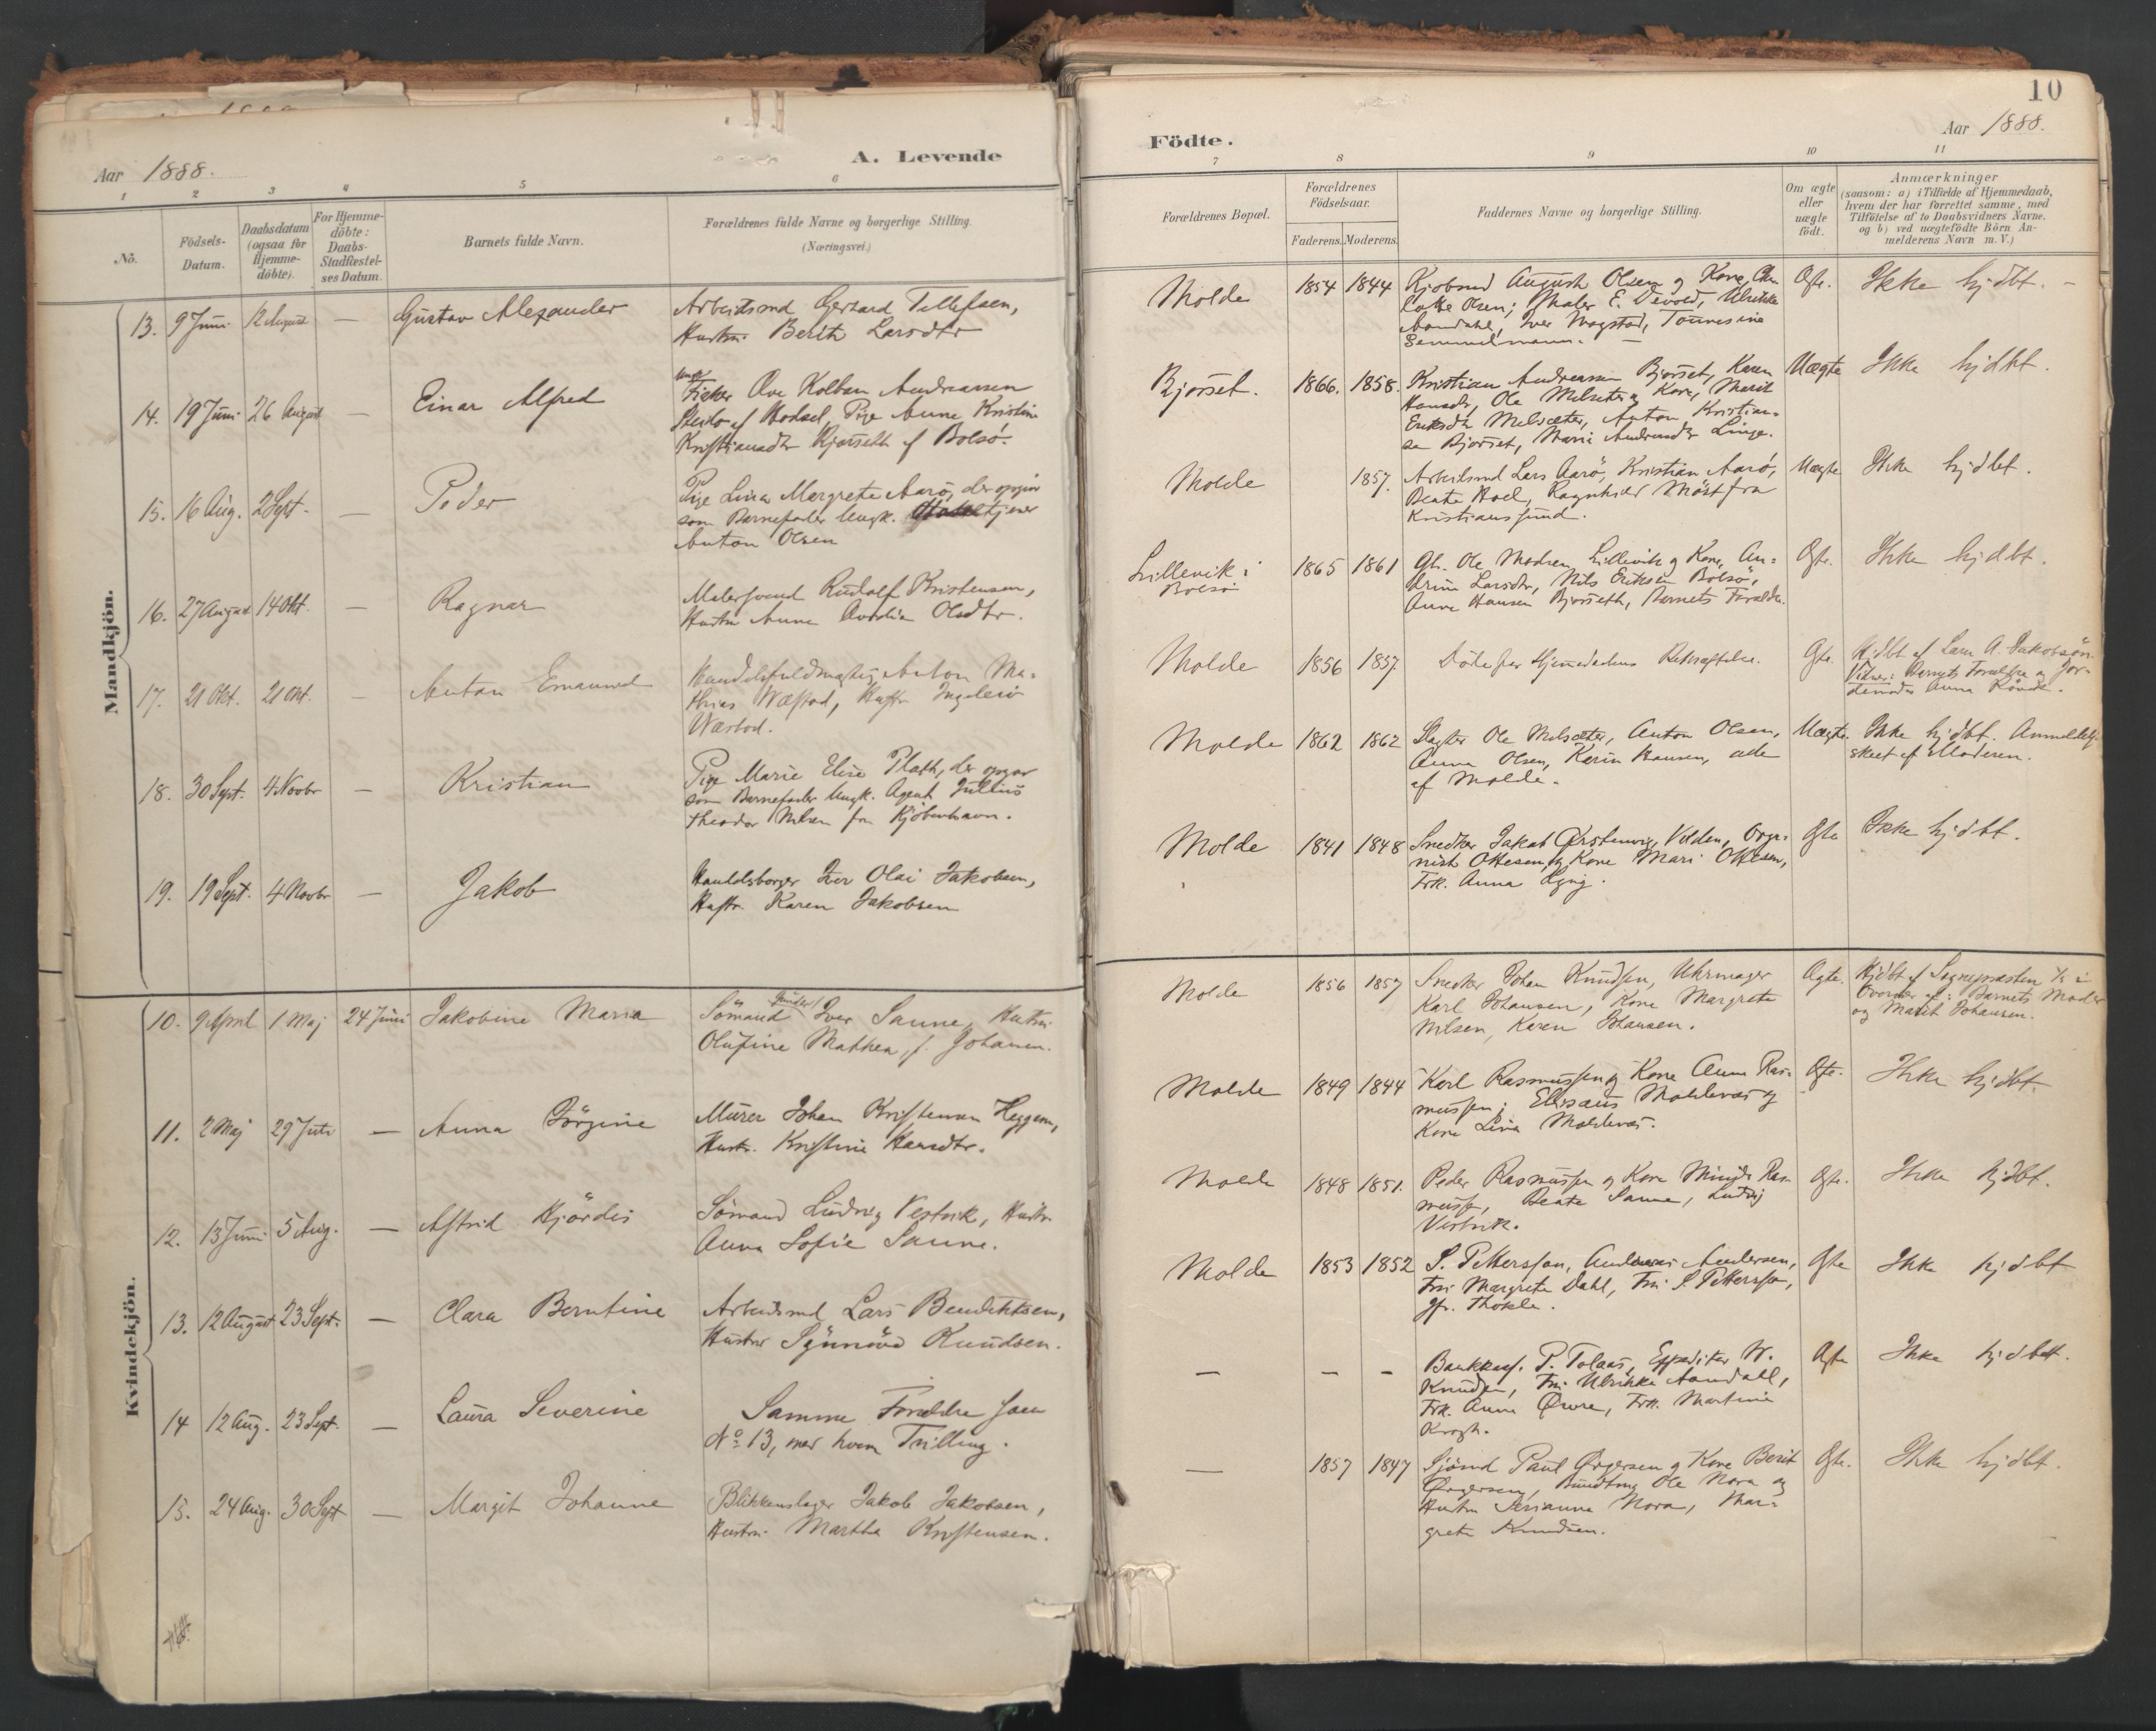 Aar 1888.
A. Levende
1 2 3 4 5 6
No.
Födsels-
Datum.
Daabsdatum
(ogsaa for
Hjemme-
döbte).
For Hjemme-
döbte:
Daabs-
Stadfæstel-
ses Datum.
Barnets fulde Navn.
Forældrenes fulde Navne og borgerlige Stilling.
(Næringsvei.)
Mandkjön.
13. 9 Juni 12 August — Gustav Alexander
Arbeidsmd Gerhard Tellefsen,
Hustru Berith Larsdtr
14. 19 Juni 26 August — Einar Alfred
Ungk.
Fisker Ove Kolban Andreassen
af Hadsel, Pige Anne Kristine
Kristiansdtr Bjørseth af Bolsø.
15. 16 Aug. 2 Sept. — Peder
Pige Lina Margrete Aarø, der opgiv
som Barnefader Ungk. tjener
Anton Olsen
16. 27 August 14 Okt. — Ragnar
Malersvend Rudolf Kristensen,
Hustru Anne Olsdtr.
17. 21 Okt. 21 Okt. — Anton Emanuel
Handelsfuldmægtig Anton Ma-
thias Næstad, Hustr Ingeleiv
Næstad.
18. 30 Sept. 4 Novbr — Kristian
Pige Marie Elise Plath, der opgav
som Barnefader Ungk. Agent Julius
Theodor Nilsen fra Kjöbenhavn.
19. 19 Sept. 4 Novbr — Jakob
Handelsborger Iver Olai Jakobsen,
Hustr. Karen Jakobsen
Kvindekjön.
10. 9 April 1 Maj 24 Juni Jakobine Maria
Sömand Iver Sanne, Hustru
Olufine Mathea, f. Johansen.
11. 2 Maj 29 Juli — Anna Jörgine
Murer Johan Kristensen Heggem,
Hustr. Kristine Hansdtr.
12. 13 Juni 5 Aug. — Astrid Hjördis
Sömand Ludvig Vestvik, Hustr.
Anna Sofie Sanne.
13. 12 August 23 Sept. — Clara Berntine
Arbeidsmd Lars Bendiktsen,
Hustru Synnöve Knudsen.
14 12 Aug. 23 Sept. — Laura Severine
Samme Forældre som
No 13, med hvem Tvilling.
15. 24 Aug. 30 Sept — Margit Johanne
Blikkenslager Jakob Jakobsen,
Hustru Martha Kristensen.
10
Födte.
Aar 1888.
7 8 9 10 11
Forældrenes Bopæl.
Forældrenes
Födselsaar.
Faderens. Moderens.
Faddernes Navne og borgerlige Stilling.
Om ægte
eller
uægte
födt.
Anmærkninger
(saasom: a) i Tilfælde af Hjemmedaab,
hvem der har forrettet samme, med
Tilföielse af to Daabsvidners Navne.
og b) ved uægtefödte Börn An-
melderens Navn m. V.)
Molde 1854 1844
August Olsen og Kone Char-
lotte Olsen; Maler E. Devold, Ulrikke
Aandahl, Iver Mogstad, Tonnesine
Semmelmann. —
Ægte. Ikke hjdbt. —
Bjørset. 1866. 1858.
Kristian Andreassen Bjørset, Karen
Hansdr, Ole Melsæter og Kone, Marit
Eriksdtr Melsæter, Anton Kristian-
sen Bjørset, Marie Andreasdtr Linge.
Uægte Ikke hjdbt.
Molde 1857.
Arbeidsmd Lars Aarö, Kristian Aarö,
Beate Hoel, Ragnhild Möst fra
Kristianssund.
Uægte Ikke hjdbt.
Lillevik i
Bolsø
1865 1861
Gb. Ole Madsen Lillevik og Kone, An-
drine Larsdtr, Nils Eriksen Bolsö,
Anne Hansen Bjørseth, Barnets Forældre.
Ægte. Ikke hjdbt.
Molde 1856 1857.
Döde før Hjemmedaabens Bekræftelse.
Ægte. Hjdbt af Lars A. Jakobsön.
Vidner: Barnets Forældre og Jor-
demoder Anna Rönde.
Molde 1862 1862
Slagter Ole Melsæter, Anton Olsen,
Anna Olsen, Karin Hansen, alle
af Molde.
Uægte. Ikke hjdbt. Anmeldelse
skeet af Moderen.
Molde 1841 1848
Snedker Jakob Ørstenvig, Volden, Orga-
nist Ottesen og Kone Mari Ottesen,
Frk. Anna Lyng.
Ægte Ikke hjdbt.
Molde 1856 1857
Snedker Johan Knudsen, Uhrmager
Karl Johansen, Kone Margrete
Nilsen, Karen Johansen.
Ægte. Hjdbt af Sognepræsten 1/5 i
Overvær af: Barnets Moder
og Marit Johansen.
Molde 1849 1844
Karl Rasmussen og Kone Anne Ras-
mussen; Elisæus Moldevær og
Kone Lina Moldevær.
Ægte. Ikke hjdbt.
Molde 1848 1851.
Peder Rasmussen og Kone Minda Ras-
mussen, Beate Sanne, Ludvig
Vestvik.
Ægte. Ikke hjdbt.
Molde 1853 1852
S. Pettersson, Andreas Andersen,
Fru Margrete Dahl, Fru S. Pettersson,
Gfr. Thokle.
Ægte Ikke hjdbt
— — —
Bankkass. P. Tolaas, Expeditør W.
Knudsen, Fru Ulrikke Aandahl,
Frk. Anna Øwre, Frk. Martine
Krogh.
Ægte Ikke hjdbt.
— 1857 1847
Sjömd Paul Ørgersen og Kone Berit
Ørgersen, Bundtmg Ole Nora og
Hustru Serianna Nora, Mar-
grete Knudsen.
Ægte. Ikke hjdbt.